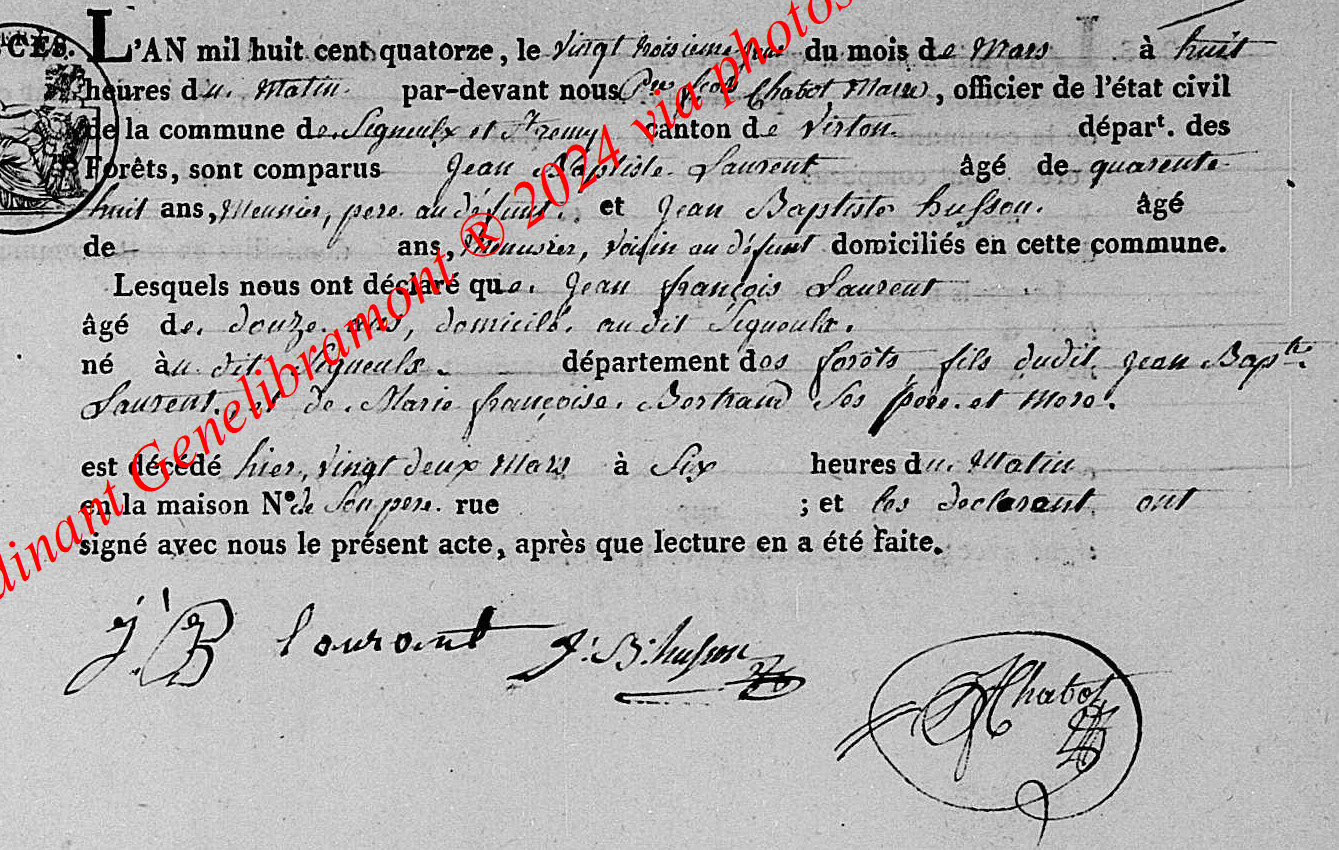 CES.
L'AN mil huit cent quatorze, le vingt troisieme jour du mois de Mars à huit
heures du Matin par-devant nous Chabot Maire, officier de l'état civil
de la commune de Signeulx et St remy canton de Virton départ. des
Forêts, sont comparus Jean Baptiste Laurent âgé de quarente
huit ans, Meunier, pere au défunt, et Jean Baptiste husson. âgé
de ans, Menusier, voisin au défunt domiciliés en cette commune.
Lesquels nous ont déclaré que Jean françois Laurent
âgé de douze ans, domicilé audit Signeulx.
né àu dit Signeulx. département des forêts, fils dudit Jean Baptte
Laurent, et de Marie françoise Bertrand Ses pere et Mere.
est décédé hier, vingt deux Mars à Six heures du Matin
en la maison N° de Son pere rue ; et les declarant ont
signé avec nous le présent acte, après que lecture en a été faite.
J. B laurent J. B. husson Chabot
dinant Genelibramont ® 2024 via photos